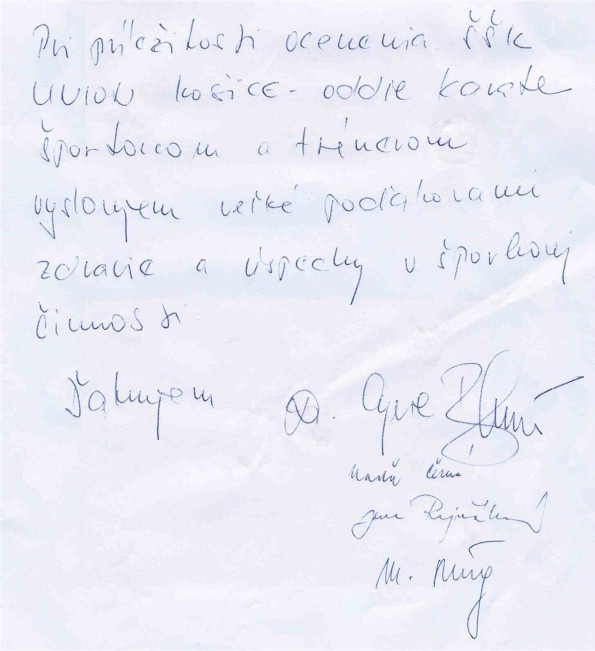 Pri príležitosti ocenenia ŠŠK
UNION KOŠICE - oddie karate
športovcom a trénerom
vyslovujem veľké poďakovanie
zdravie a úspechy v športovej
činnosti
Ďakujem
M.